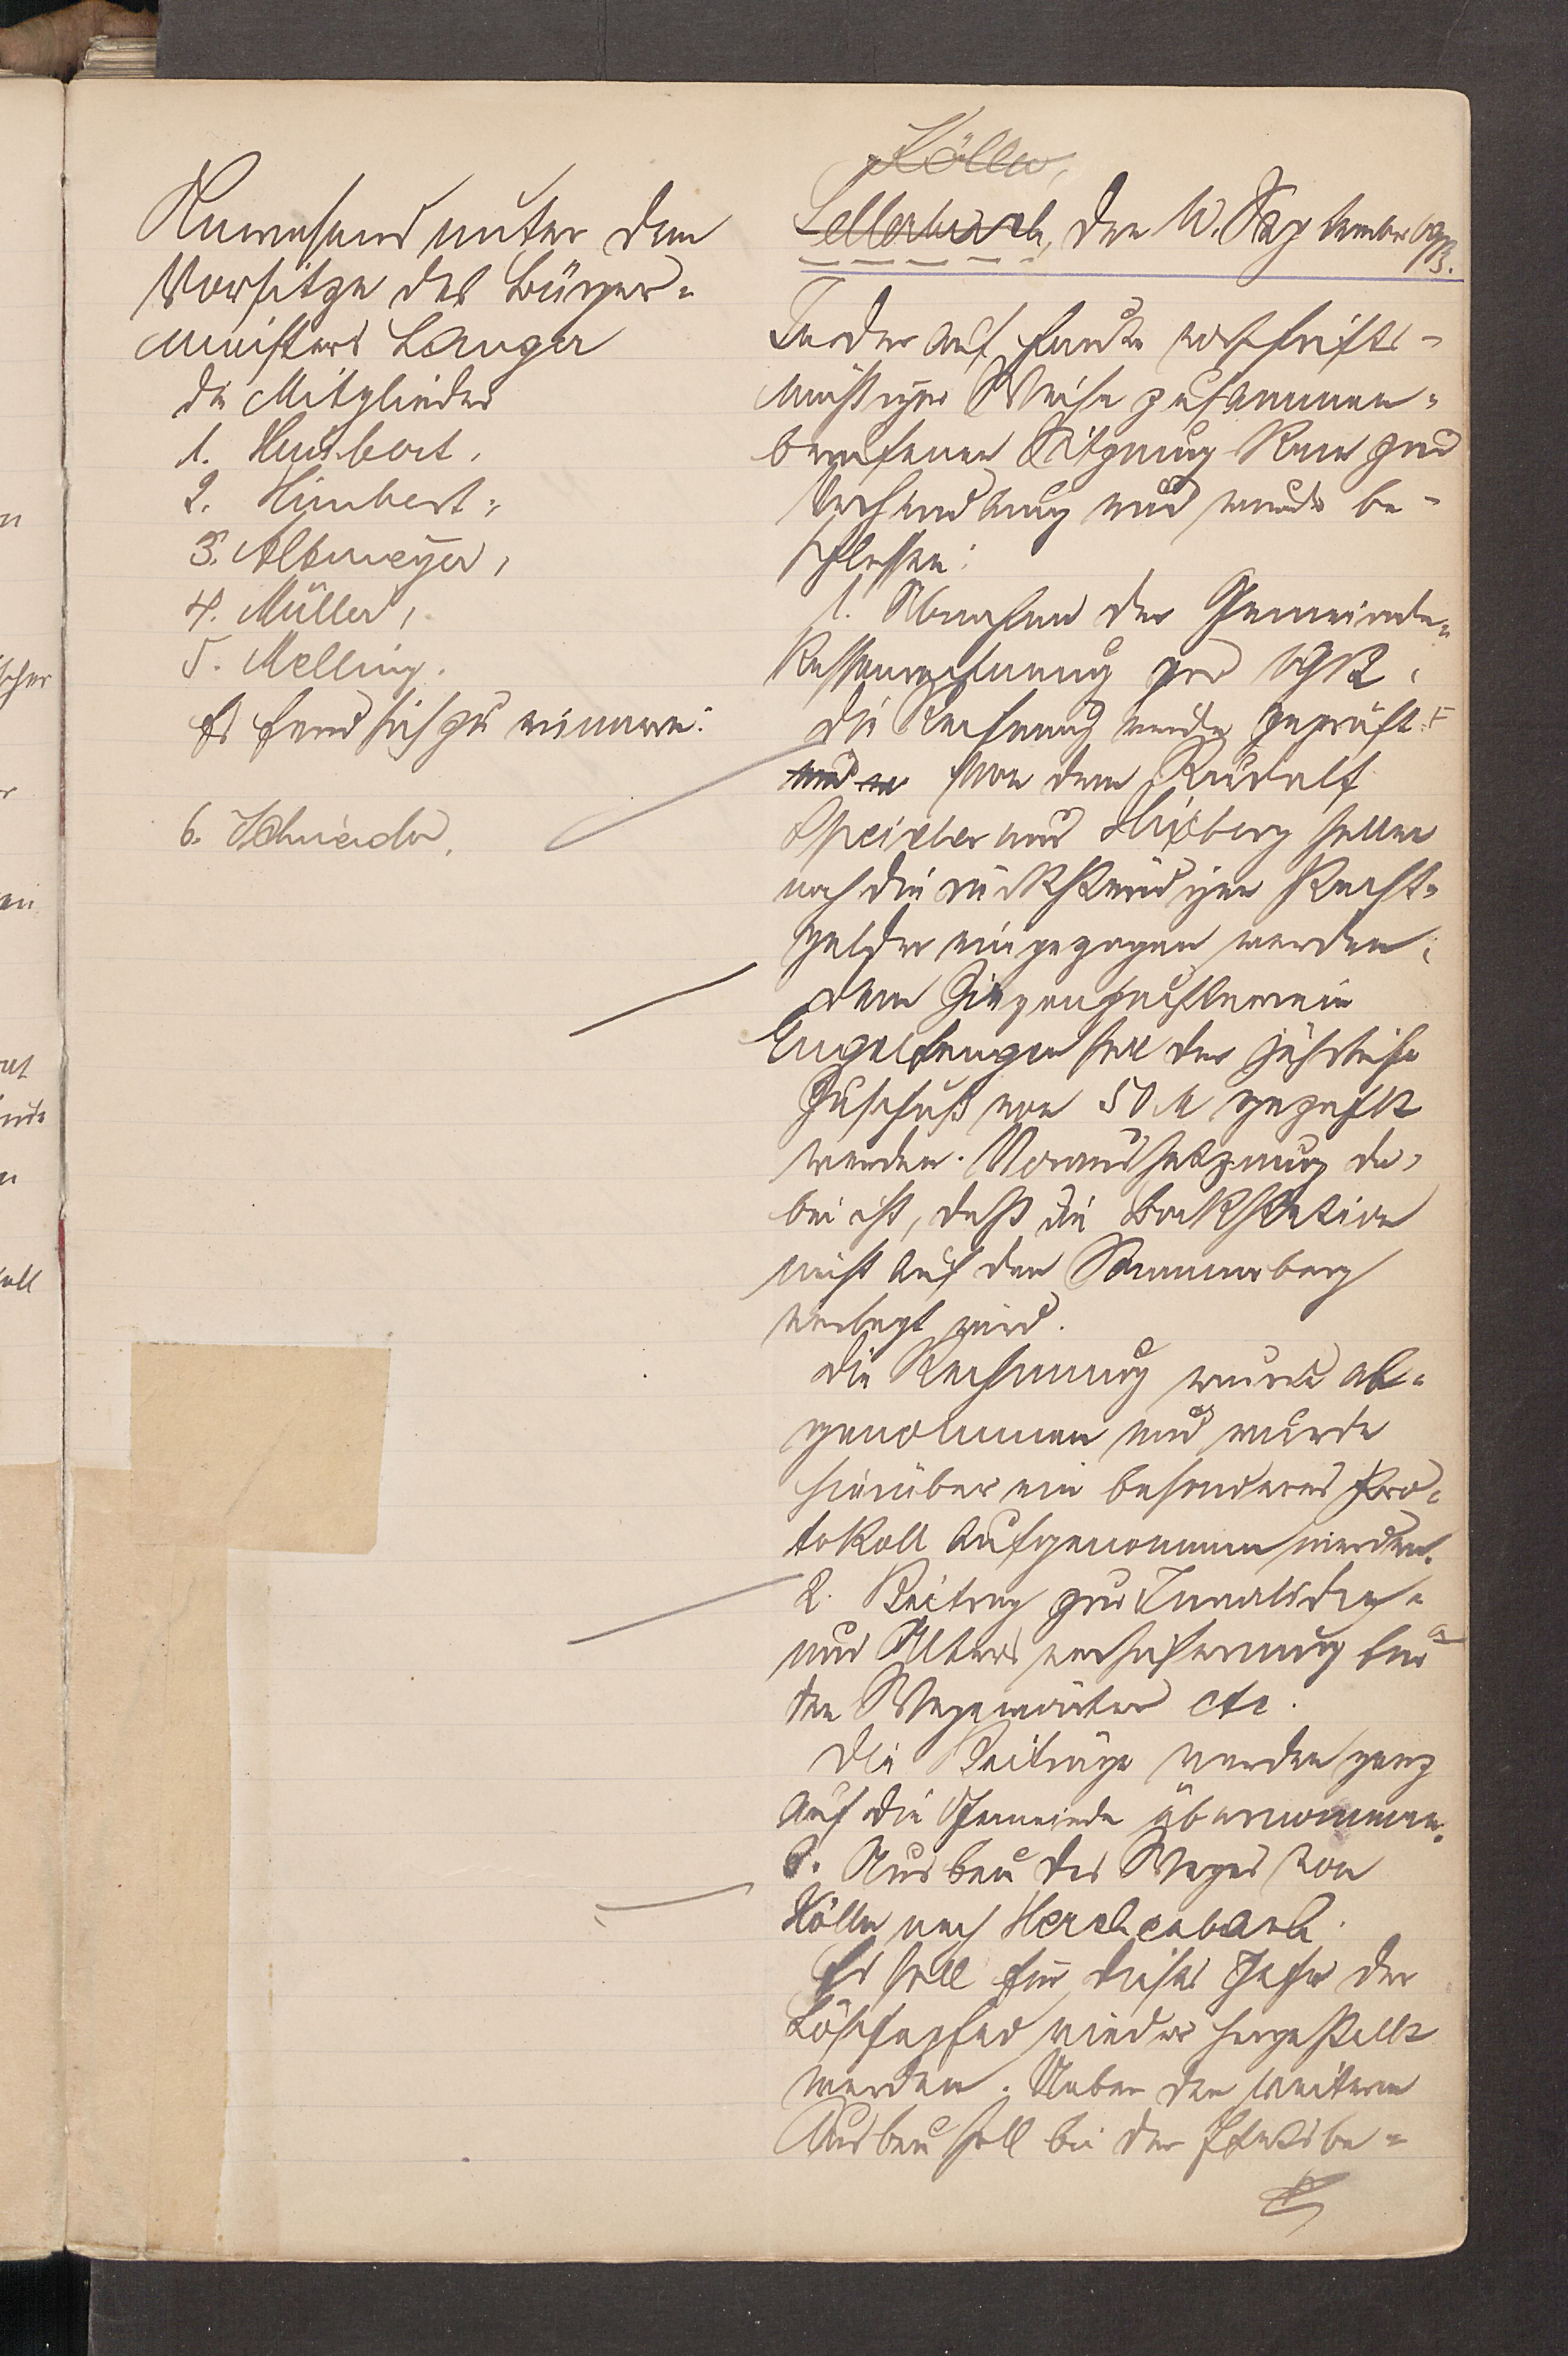 Anwesend unter dem
Vorsitze des Bürger=
meisters Langer
die Mitglieder
1. Humbert,
2. Himbert,
3. Altmeyer,
4. Müller,
5. Melling.
Es fand sich zu erinnern:
6. Schneider.
Kölln,
Sellerbach, den September 1913.
In der auf heute vorschrifts-
mäßiger Weise zusammen=
berufenen Sitzung kam zur
Verhandlung und wurde be-
schlossen:
1. Abnahme der Gemeinde=
kassenrechnung pro 1912.
Die Rechnung wurde geprüft.
und Von dem Rudolf
Speicher aus Hixberg sollen
noch die rückständigen Pacht=
gelder eingezogen werden.
Dem Ziegenzuchtverein
Engelfangen soll der jährliche
Zuschuß von 50 M gezahlt
werden. Voraussetzung da=
bei ist, daß die Bockstation
nicht auf den Sommerberg
verlegt wird.
Die Rechnung wurde ab=
genommen und wurde
hierüber ein besonderes Pro=
tokoll aufgenommen werden.
2. Beitrag zur Invaliden=
und Altersversicherung für
den Wegewärter etc.
Die Beiträge werden ganz
auf die Gemeinde übernommen.
3. Ausbau des Weges von
Kölln nach Herchenbach.
Es soll für dieses Jahr der
wieder hergestellt
werden. Ueber den weiteren
Ausbau soll bei der Etatsbe=